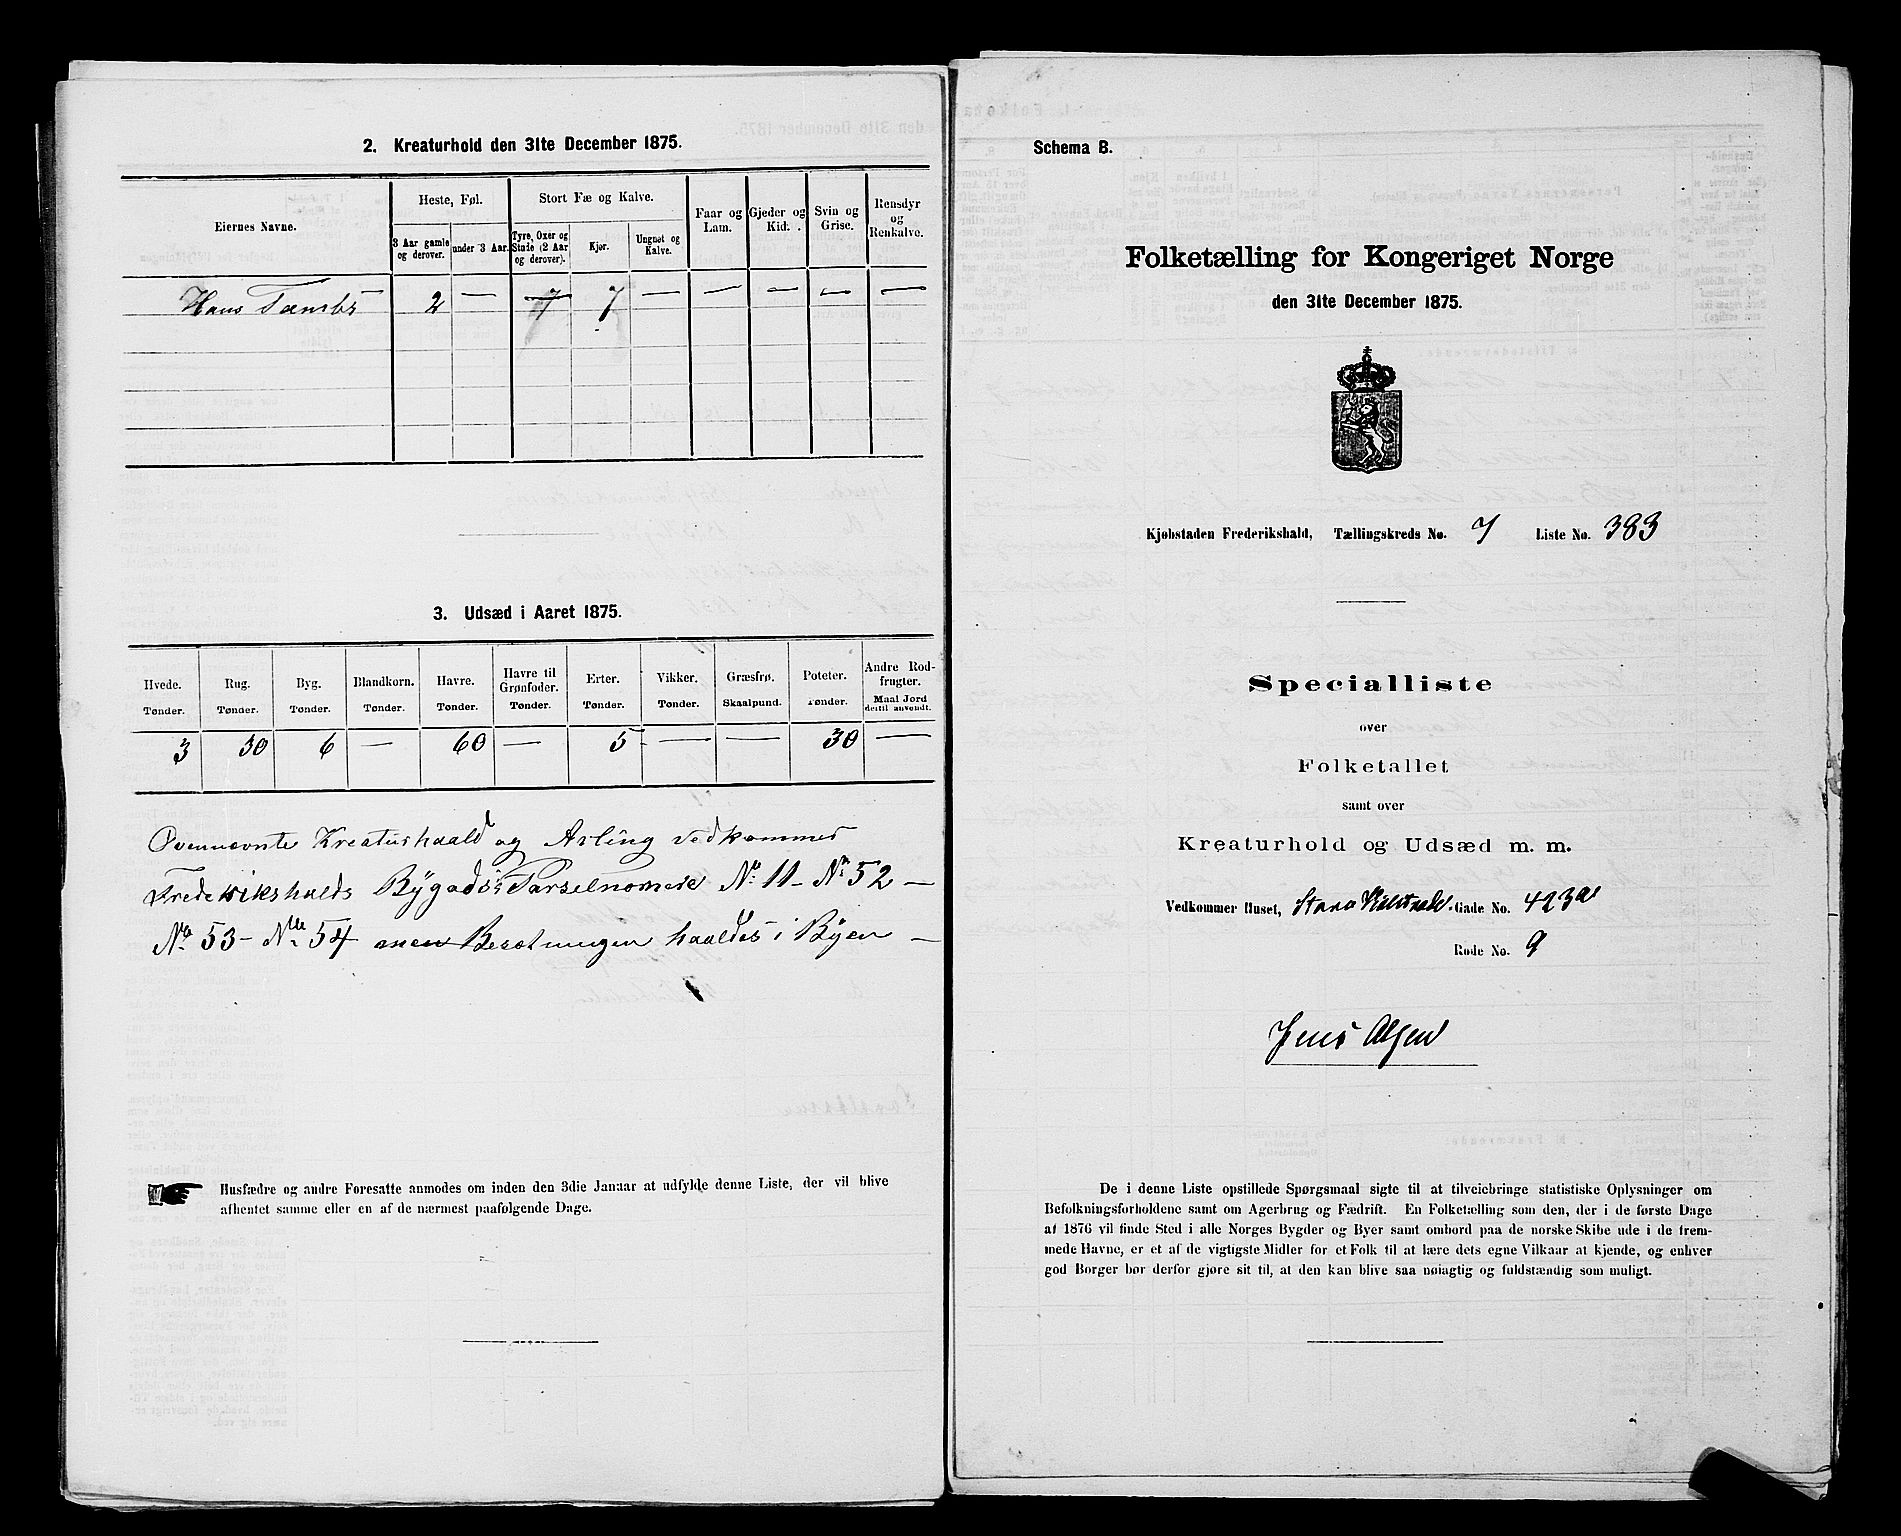 2. Kreaturhold den 31te December 1875.
Eiernes Navne.
Heste, Føl.
Stort Fæ og Kalve.
Faar og Lam.
Gjeder og Kid.
Svin og Grise.
Rensdyr og Renkalve.
3 Aar gamle og derover.
under 3 Aar.
Tyre, Oxer og Stude (2 Aar og derover).
Kjør.
Ungnøt og Kalve.
Hans 2 — 7 7 — — — — —
3. Udsæd i Aaret 1875.
Hvede. Rug. Byg. Blandkorn. Havre. Havre til Grønfoder. Erter. Vikker. Græsfrø. Poteter. Andre Rodfrugter.
Tønder. Tønder. Tønder. Tønder. Tønder. Tønder. Tønder. Tønder. Skaalpund. Tønder. Maal Jord dertil anvendt.
3 30 6 — 60 — 5 — — 30 —
Ovennævnte Kreaturhaald og Avling vedkommer
Frederikshalds Bygads Parselnomere No 11 – No 52 –
No 53 – No 54 men Besætningen haaldes i Byen –
Husfædre og andre Foresatte anmodes om inden den 3die Januar at udfylde denne Liste, der vil blive
afhentet samme eller en af de nærmest paafølgende Dage.
Schema B.
Folketælling for Kongeriget Norge
den 31te December 1875.
Kjøbstaden Frederikshald, Tællingskreds No. 7 Liste No. 383
Specialliste
over
Folketallet
samt over
Kreaturhold og Udsæd m. m.
Vedkommer Huset, Gade No. 423a
Rode No. 9
Jens Olsen
De i denne Liste opstillede Spørgsmaal sigte til at tilveiebringe statistiske Oplysninger om
Befolkningsforholdene samt om Agerbrug og Fædrift. En Folketælling som den, der i de første Dage
af 1876 vil finde Sted i alle Norges Bygder og Byer samt ombord paa de norske Skibe ude i de frem-
mede Havne, er et af de vigtigste Midler for et Folk til at lære dets egne Vilkaar at kjende, og enhver
god Borger bør derfor gjøre sit til, at den kan blive saa nøiagtig og fuldstændig som muligt.